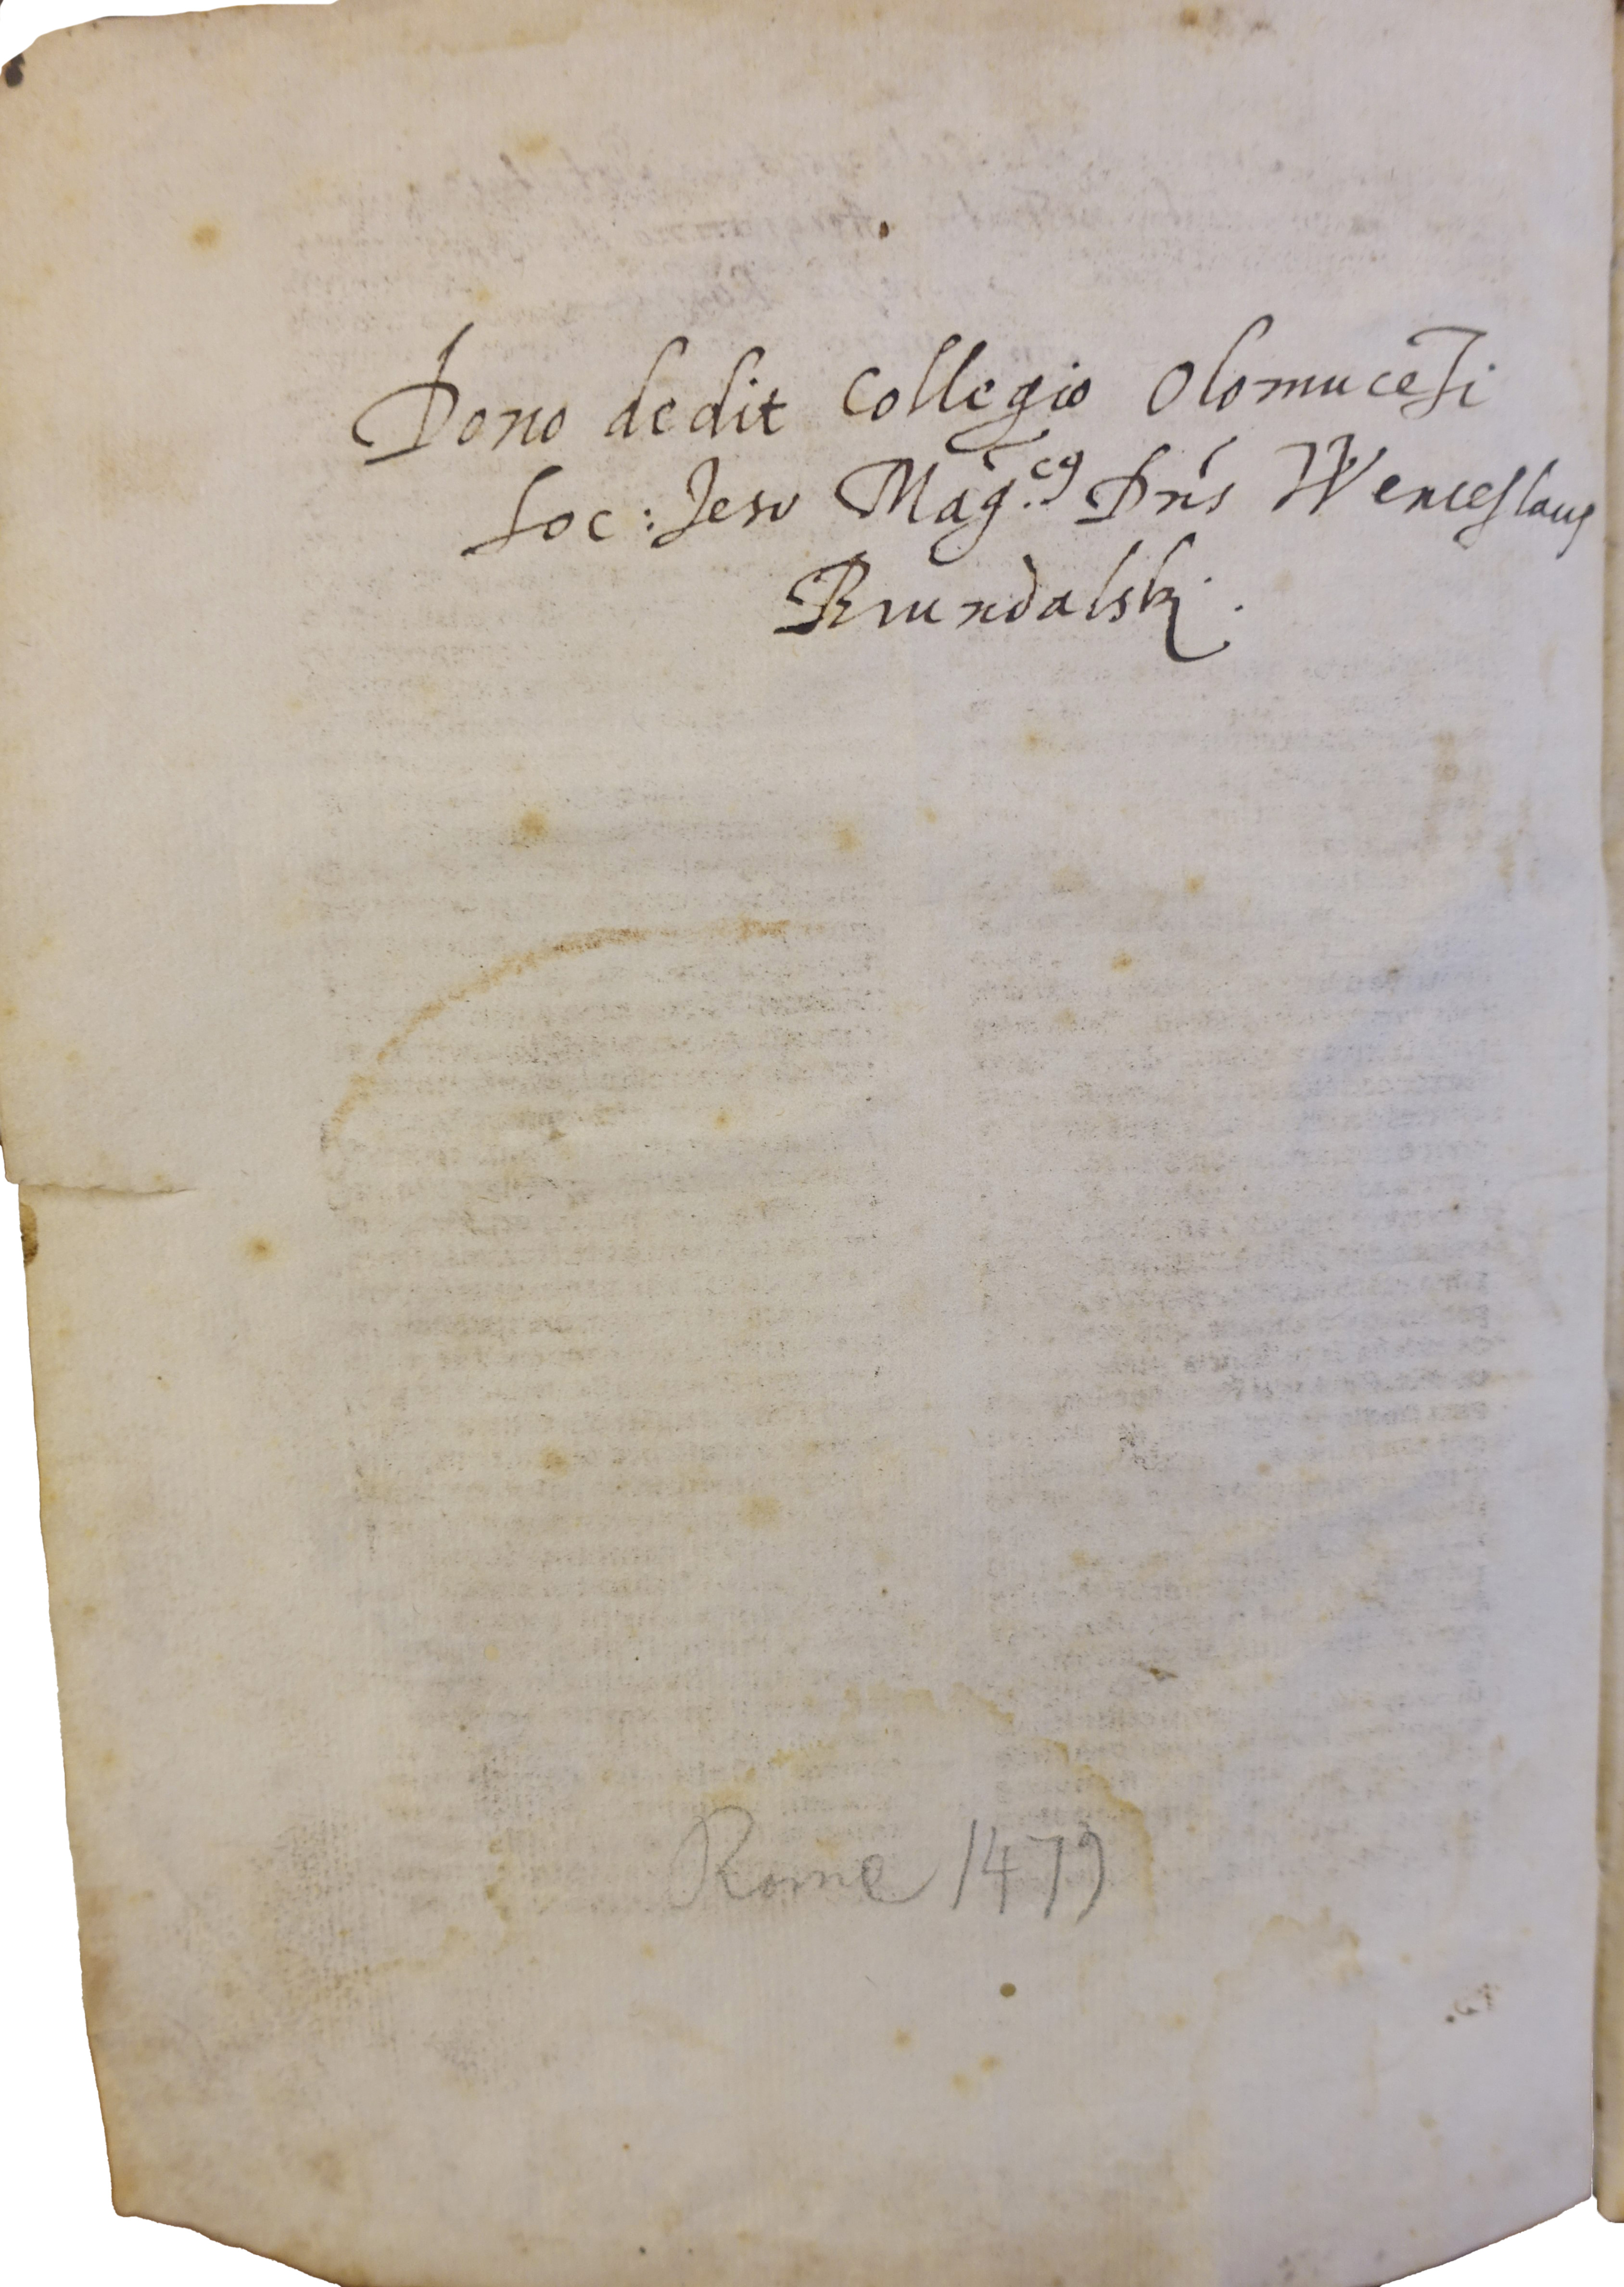 Dono dedit Collegio Olomucēsi
Soc: Jesu Mag.cꝯ Dn̄s Wenceslaꝯ
Brundalski.
Rome 1479